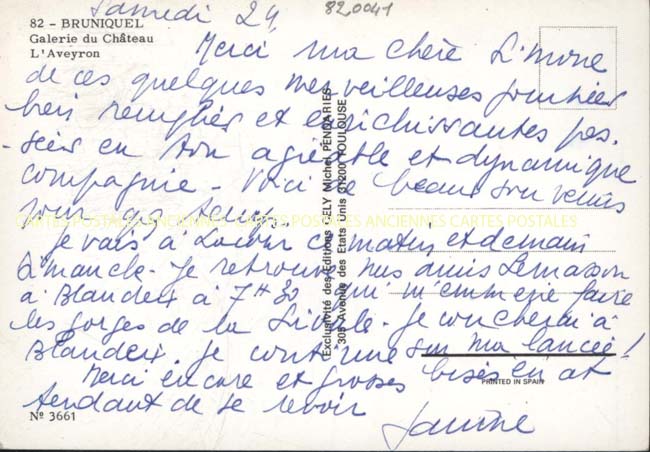 Samedi 24
820041
82 - BRUNIQUEL
Galerie du Château
L'Aveyron
Merci ma chère Simone
de ces quelques merveilleuses journées
bien remplies et enrichissantes pas-
-sées en ton agréable et dynamique
compagnie - Voici de beaux souvenirs
pour
CARTES POSTALES ANCIENNES CARTES POSTALES ANCIENNES CARTES POSTALES
Je vais à ce matin, et demain
dimanche. Je retrouve nos amis Lemasson
à Blandeix à 7H30 qui m'emmène faire
les gorges de la . Je coucherai à
Blandeix. Je continue sur ma lancée !
Merci encore et grosses bises en at
tendant de se revoir
Janine
Exclusivité des Editions APELY Michel PENDARIES
305 Avenue des Etats Unis 31200 TOULOUSE
PRINTED IN SPAIN
Nº 3661